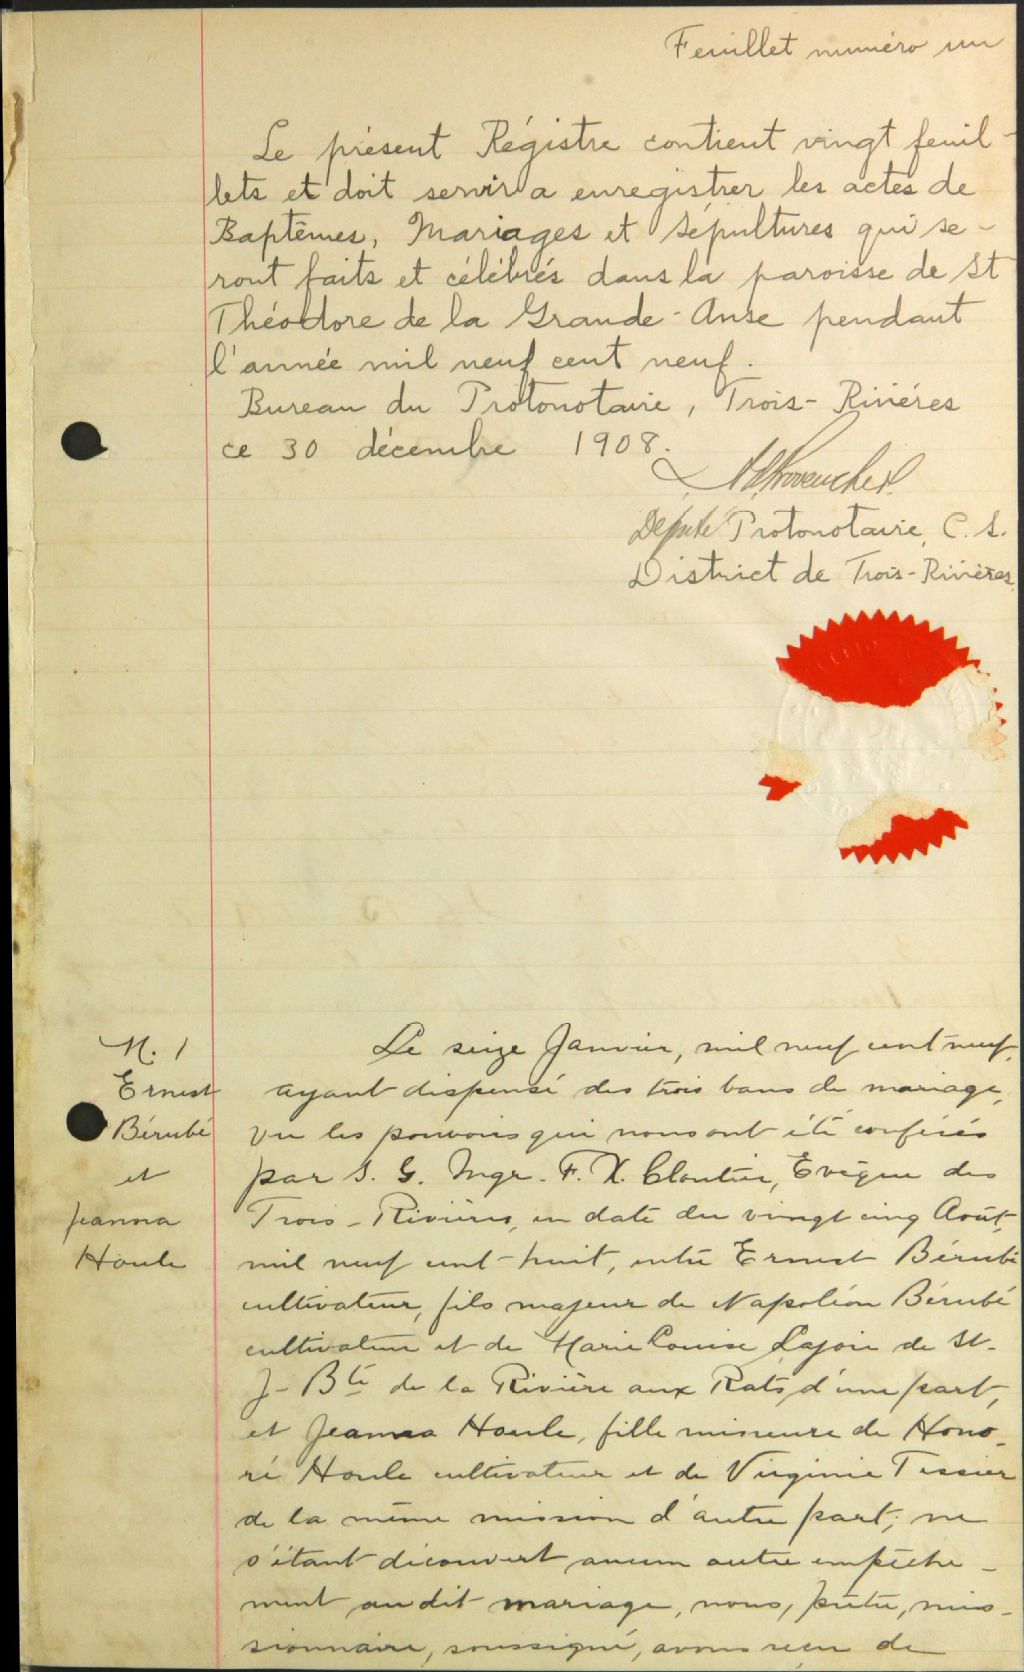 Feuillet numéro un
Le présent Régistre contient vingt feuil-
lets et doit servir a enregistrer les actes de
Baptêmes, Mariages et Sépultures qui se-
ront faits et célébrés dans la paroisse de St
Théodore de la Grande-Anse pendant
l'année mil neuf cent neuf.
Bureau du Protonotaire, Trois-Riviéres
ce 30 décembre 1908.
Provencher
Deputé Protonotaire, C. S.
District de Trois-Rivières
M. 1
Ernest
Bérubé
et
Jeanna
Houle
Le seize Janvier, mil neuf cent neuf,
ayant dispensé des trois bans de mariage,
vu les pouvoirs qui nous ont été conférés
par S. G. Mgr. F. X. Cloutier, Evèque des
Trois-Rivières, en date du vingt cinq Août,
mil neuf cent-huit, entre Ernest Bérubé
cultivateur, fils majeur de Napoléon Bérubé
cultivateur et de Marie Louise Lajoie de St-
J-Bte de la Rivière aux Rats, d'une part,
et Jeanna Houle, fille mineure de Hono-
ré Houle cultivateur et de Virginie Tessier
de la même mission d'autre part; ne
s'étant découvert aucun autre empêche-
ment au dit mariage, nous, prêtre, mis-
sionnaire, soussigné, avons reçu de